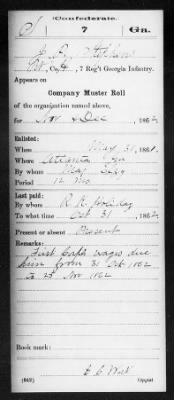 Confederate.
7 Ga.
Co. H, 7 Reg't Georgia Infantry.
Appears on
Company Muster Roll
of the organization named above,
for Nov & Dec, 1862
Enlisted:
When May 31, 1861.
Where Atlanta Geo
By whom Maj
Period 12 Mo
Last paid:
By whom R. K. Holliday
To what time Oct 31, 1862
Present or absent Present
Remarks:
due
him from 31 Oct 1862
to 25 Nov 1862
Book mark:
(642) Copyist